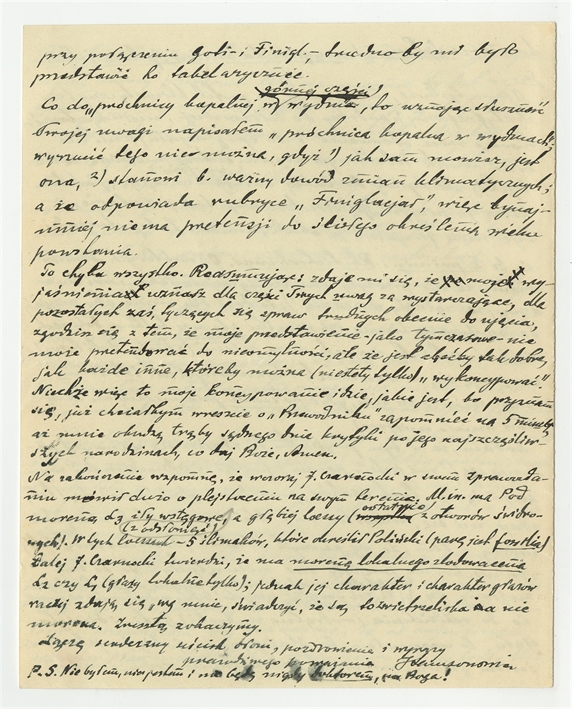 przy połączeniu Goti- i Finigl.-, trudno by mi było
przedstawić to tabelarycznie.
górnej części
Co do „próchnicy kopalnej w wydmie, to uznając słuszność
Twojej uwagi napisałem „próchnica kopalna w wydmach".
wyrzucić tego nie można, gdyż 1) jak sam mówisz, jest
ona, 2) stanowi b. ważny dowód zmian klimatycznych;
a że odpowiada rubryce „Finiglacjał", więc bynaj-
mniej nie ma pretensji do ścisłego określenia wieku
powstania.
To chyba wszystko. Reasumując: zdaje mi się, że moje wy-
jaśnienia uznasz dla części Twych uwag za wystarczające, dla
pozostałych zaś, tyczących się spraw trudnych obecnie do ujęcia,
zgodzisz się z tem, że moje przedstawienie – jako tymczasowe – nie
może pretendować do nieomylności, ale że jest choćby tak dobre,
jak każde inne, które by można (niestety tylko) „wykoncypować".
Niechże więc to moje koncypowanie idzie, jakie jest, bo przyznam
się, już chciałbym wreszcie o „Przewodniku" zapomnieć na
aż mnie obudzą trąby sądnego dnia krytyki po jego najszczęśliw-
szych narodzinach, co daj Boże, Amen.
Na zakończenie wspomnę, że wczoraj J. Czarnocki w swem sprawozda-
niu mówił dużo o plejstocenie na swym terenie. M. in. ma pod
moreną L3 iły wstęgowe, a głębiej loessy (ostatnio z otworów świdro-
(z odsłonięć)
wych). W tych loessach – 5 ślimaków, które określił Poliński (parę jest fossilia)
Dalej J. Czarnocki twierdzi, że ma morenę lokalnego zlodowacenia
L2 czy L3 (głazy lokalne tylko); jednak jej charakter i charakter głazów
raczej zdają się, wg mnie, świadczyć, że są to zwietrzeliska a nie
morena. Zresztą zobaczymy.
Łączę serdeczny uścisk dłoni, pozdrowienia i wyrazy
prawdziwego poważania
P.S. Nie byłem, nie jestem i nie będę nigdy doktorem, na Boga!